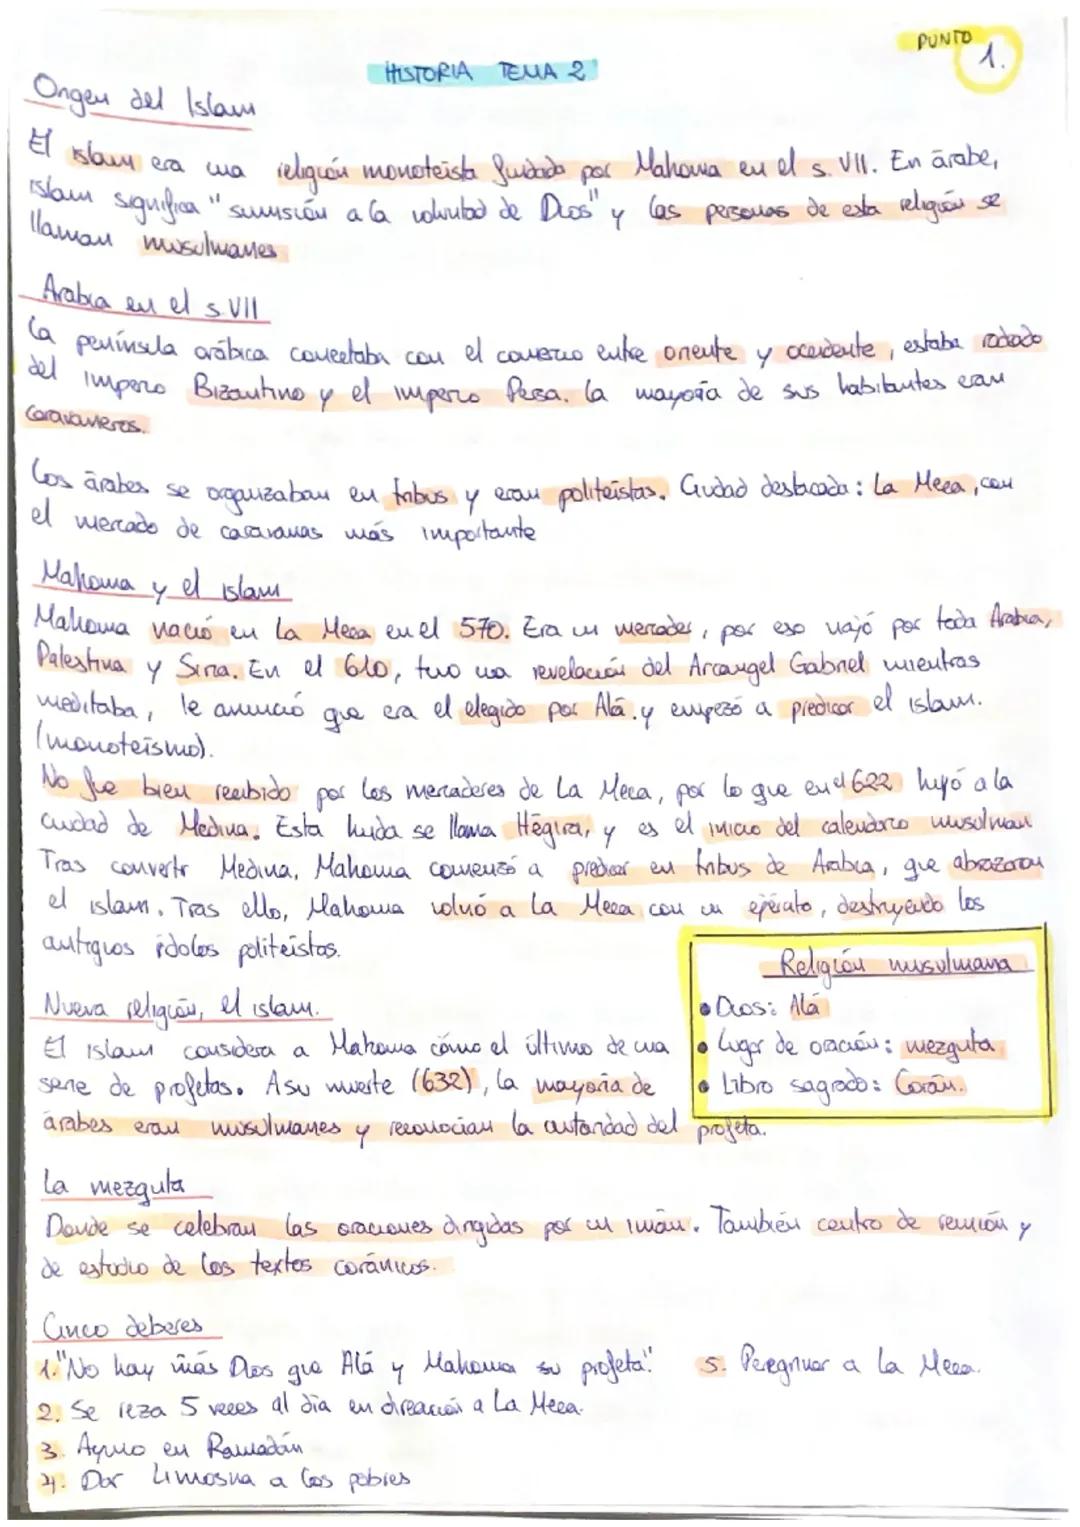 PUNTO 1.
HISTORIA TEMA 2
Origen del Islam
El islam era una religión monoteista fundada por Mahoma en el s. VII. En árabe,
islam significa "sumisión a la voluntad de Dios" y las personas de esta religión se
llaman musulmanes
Arabia en el s. VII
La península arábica conectaba con el comercio entre oriente y occidente, estaba rodeado
del imperio Bizantino y el imperio Persa. La mayoría de sus habitantes eran
Caravaneros.
Los árabes se organizaban en tribus y eran politeístas. Ciudad destacada: La Meca, con
el mercado de caravanas más importante
Mahoma y el islam
Mahoma nació en La Meca en el 570. Era un mercader, por eso viajó por toda Arabia,
Palestina y Siria. En el 610, tuvo una revelación del Arcangel Gabriel mientras
meditaba, le anunció que era el elegido por Alá. y empezó a predicar el islam.
(monoteísmo).
No fue bien recibido por los mercaderes de La Meca, por lo que en el 622 huyó a la
ciudad de Medina. Esta huida se llama Hégira, y es el inicio del calendario musulman
Tras convertir Medina, Mahoma comenzó a predicar en tribus de Arabia, que abrazaron
el islam. Tras ello, Mahoma volvió a La Meca con un ejército, destruyendo los
antiguos ídolos politeístas.
Religión musulmana
• Dios: Alá
• Lugar de oración: mezquita
• Libro sagrado: Corán.
Nueva religión, el islam.
El islam considera a Mahoma cómo el último de una
serie de profetas. A su muerte (632), la mayoría de
árabes eran musulmanes y reconocian la autoridad del profeta.
La mezquita
Donde se celebran las oraciones dirigidas por un imán. También centro de reunión y
de estudio de los textos coránicos.
Cinco deberes
1. "No hay más Dios que Alá y Mahoma su profeta."
2. Se reza 5 veces al día en dirección a La Meca.
3. Ayuno en Ramadán
4. Dar Limosna a los pobres
5. Peregrinar a La Meca.